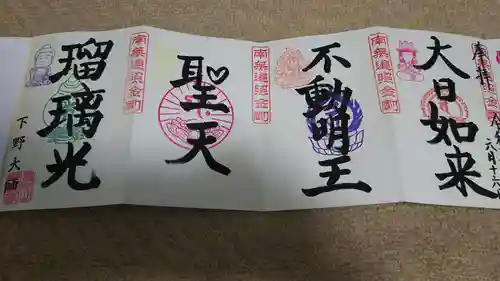 奉拝
大日如来
南無遍照金剛
不動明王
南無遍照金剛
聖天
南無遍照金剛
瑠璃光
下野大師